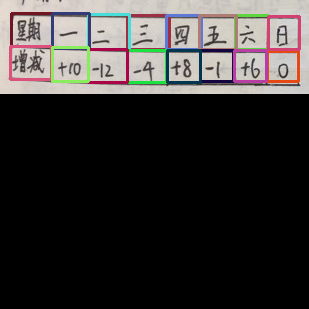 星期 一 二 三 四 五 六 日
增减 +10 -12 -4 +8 -1 +6 0